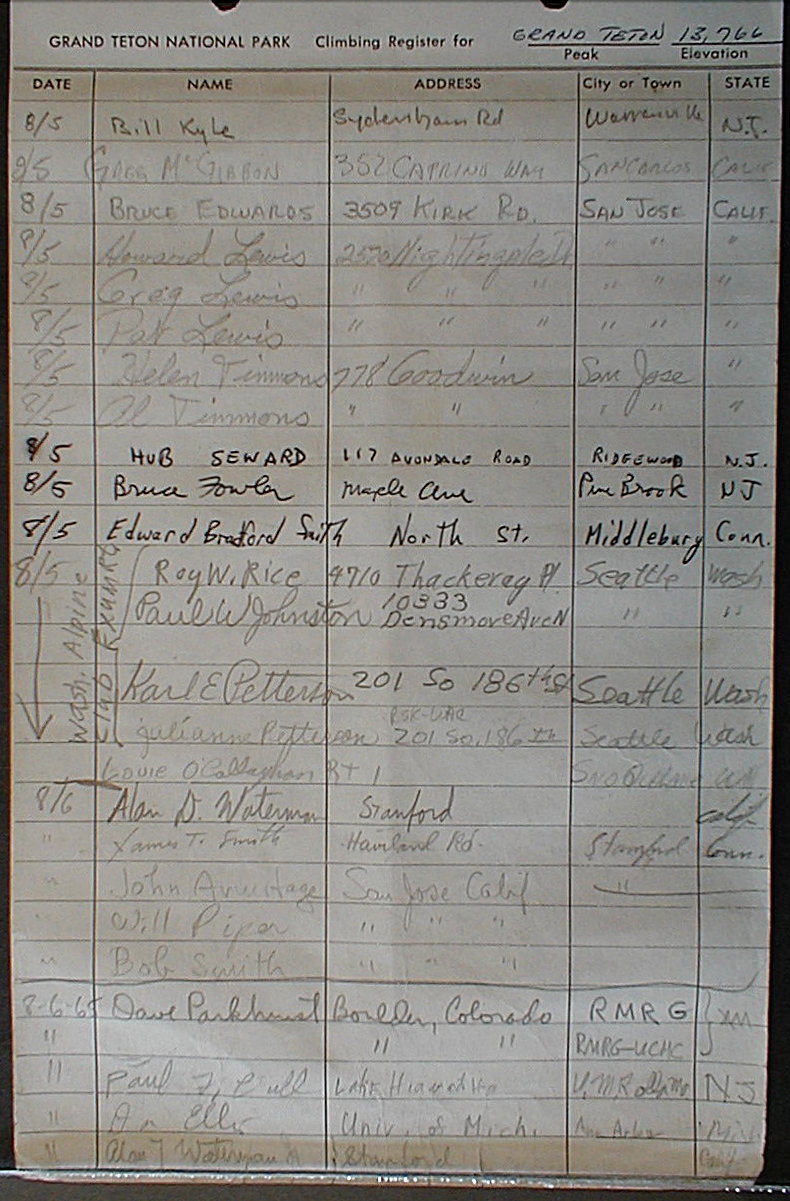 GRAND TETON NATIONAL PARK Climbing Register for GRAND TETON 13,766
Peak Elevation
DATE NAME ADDRESS City or Town STATE
8/5 Bill Kyle Rd N.J.
8/5 GREG McGIBBON 352 WAY SAN CARLOS CALIF
8/5 BRUCE EDWARDS 3509 KIRK RD. SAN JOSE CALIF.
8/5 Howard Lewis 2570 Nightingale Dr " " "
8/5 Greg Lewis " " " " " "
8/5 Pat Lewis " " " " " "
8/5 Helen Timmons 778 Goodwin San Jose "
8/5 Al Timmons " " " " "
8/5 HUB SEWARD 117 AVONDALE ROAD RIDGEWOOD N.J.
8/5 Bruce Fowler Maple Ave Pine Brook NJ
8/5 Edward Bradford Smith North St. Middlebury Conn.
8/5 Roy W. Rice 4710 Thackeray Pl Seattle Wash
Wash. Alpine
Club
Paul W Johnston 10333
Densmore Ave N " "
Karl E Petterson 201 So 186th St Seattle Wash
Julianne Petterson 201 So. 186th Seattle Wash
Louie O'Callaghan Rt 1
8/6 Alan D. Waterman Stanford Calif
" James T. Smith Haviland Rd. Stamford Conn.
" John Armitage San Jose Calif "
" Will Piper " " "
" Bob Smith " " "
8-6-65 Dave Parkhurst Boulder, Colorado RMRG
" " " RMRG-UCHC
" Paul Lake Hiawatha NJ
" Ellis Univ. of Mich. Ann Arbor Mich
" Alan T Waterman Stanford Calif